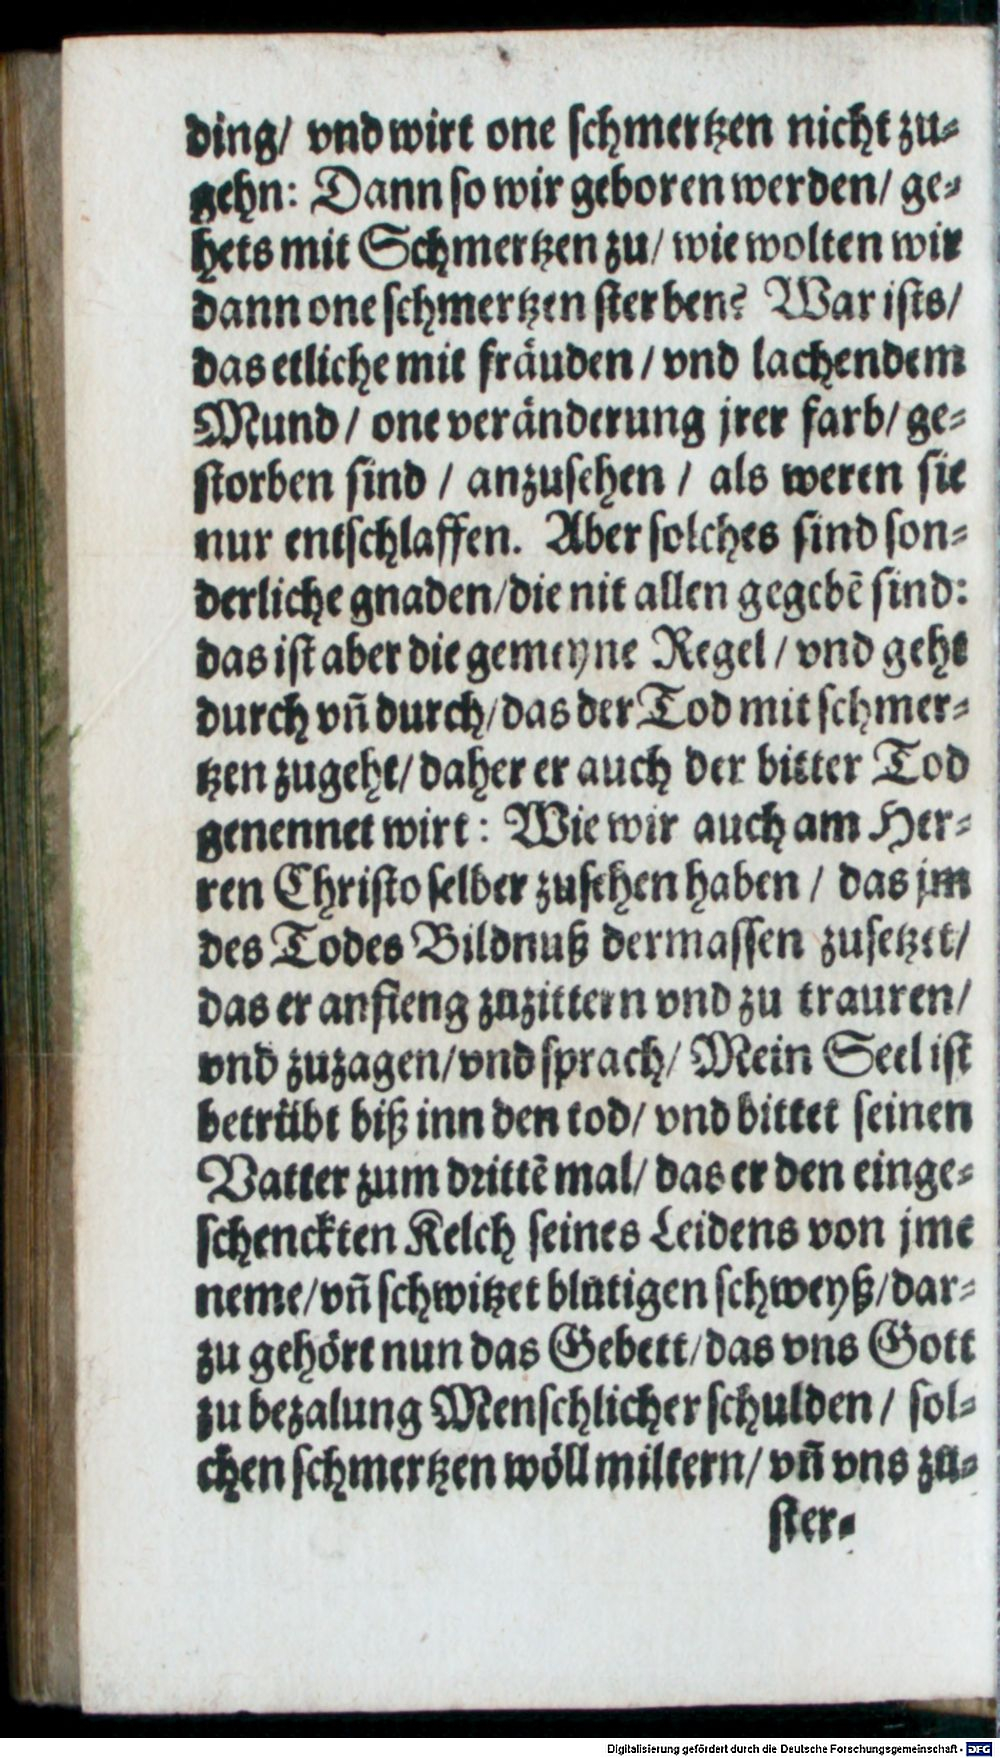 ding/ vnd wirt one schmertzen nicht zu⸗
gehn: Dann so wir geboren werden/ ge⸗
hets mit Schmertzen zu/ wie wolten wir
dann one schmertzen sterben? War ists/
das etliche mit fräuden/ vnd lachendem
Mund/ one veränderung jrer farb/ ge⸗
storben sind/ anzusehen/ als weren sie
nur entschlaffen. Aber solches sind son⸗
derliche gnaden/ die nit allen gegebẽ sind:
das ist aber die gemeyne Regel/ vnd geht
durch vñ durch/ das der Tod mit schmer⸗
tzen zugeht/ daher er auch der bitter Tod
genennet wirt: Wie wir auch am Her⸗
ren Christo selber zusehen haben/ das jm
des Todes Bildnuß dermassen zusetzet/
das er anfieng zuzittern vnd zu trauren/
vnd zuzagen/ vnd sprach/ Mein Seel ist
betrübt biß inn den tod/ vnd bittet seinen
Vatter zum drittẽ mal/ das er den einge⸗
schenckten Kelch seines Leidens von jme
neme/ vñ schwitzet blutigen schweyß/ dar⸗
zu gehört nun das Gebett/ das vns Gott
zu bezalung Menschlicher schulden/ sol⸗
chen schmertzen wöll miltern/ vñ vns zu⸗
ster⸗
Digitalisierung gefördert durch die Deutsche Forschungsgemeinschaft - DFG